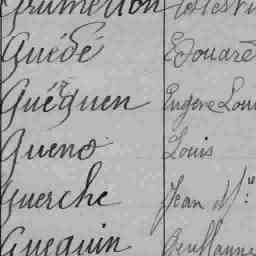 Guédé Edouard
Guérguen Eugène Loui
Gueno Louis
Guerche Jean M.
Gueguin Guillaume